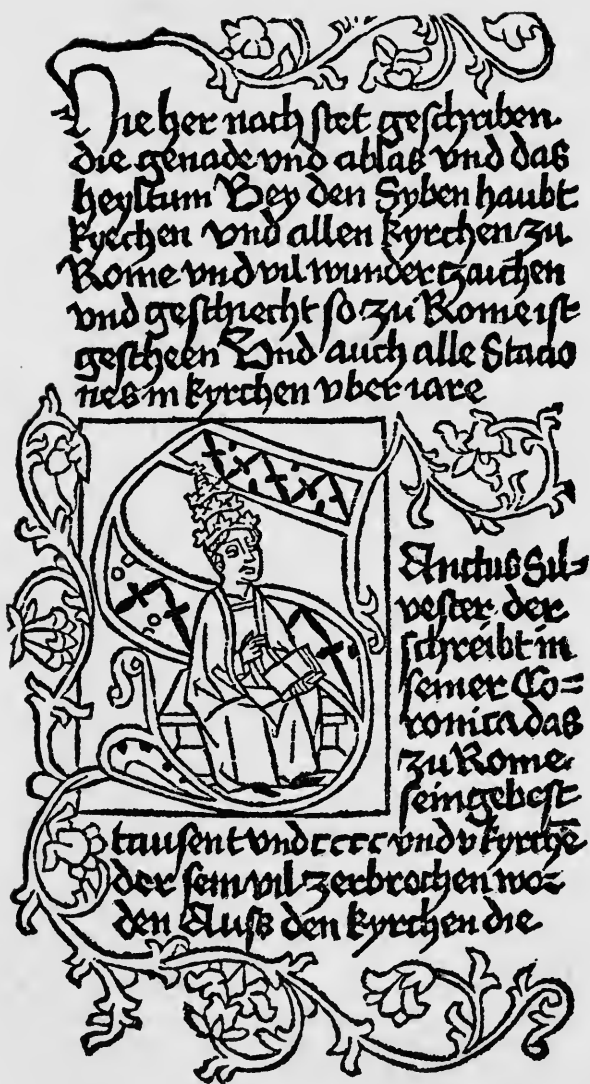 Hie her nach stet geschriben
die genade vnd ablas vnd das
heyltum Bey den Syben haubt
kyrchen vnd allen kyrchen zu
Rome vnd vil wunderczaichen
vnd geschiecht so zu Rome ist
gescheen Vnd auch alle Stacio
nes in kyrchen vber iare
Sanctus Sil=
vester der
schreibt in
seiner Co=
ronica das
zu Rome
sein gebest
tausent vnd cccc vnd v kyrchē
der sein vil zerbrochen wor
den Auss den kyrchen die